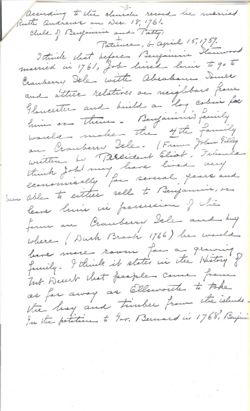 - 3 -
According to the church record he married
Ruth Andrews on Dec 18, 1761.
Child of Benjamin and Patty:
Patience, b. April 15, 1757.
I think that before Benjamin Stanwood
married in 1761, Job hired him to go to
Cranberry Isle with Abraham Somes
and other relatives or neighbors from
Gloucester and build a log cabin for
him there. Benjamin's family
would make the 4th family
on Cranberry Isle. (From John Gilley
written by President Eliot.
think Job may have lived very
economically for several years and
was able to either sell to Benjamin, or
leave him in possession of his
farm on Cranberry Isle and buy
where (Duck Brook 1766) he would
have more room for a growing
family. I think it states in the History of
Mt Desert that people came from
as far away as Ellsworth to take
the hay and timber from the islands.
In the petition to Gov. Bernard in 1768, Benjamin